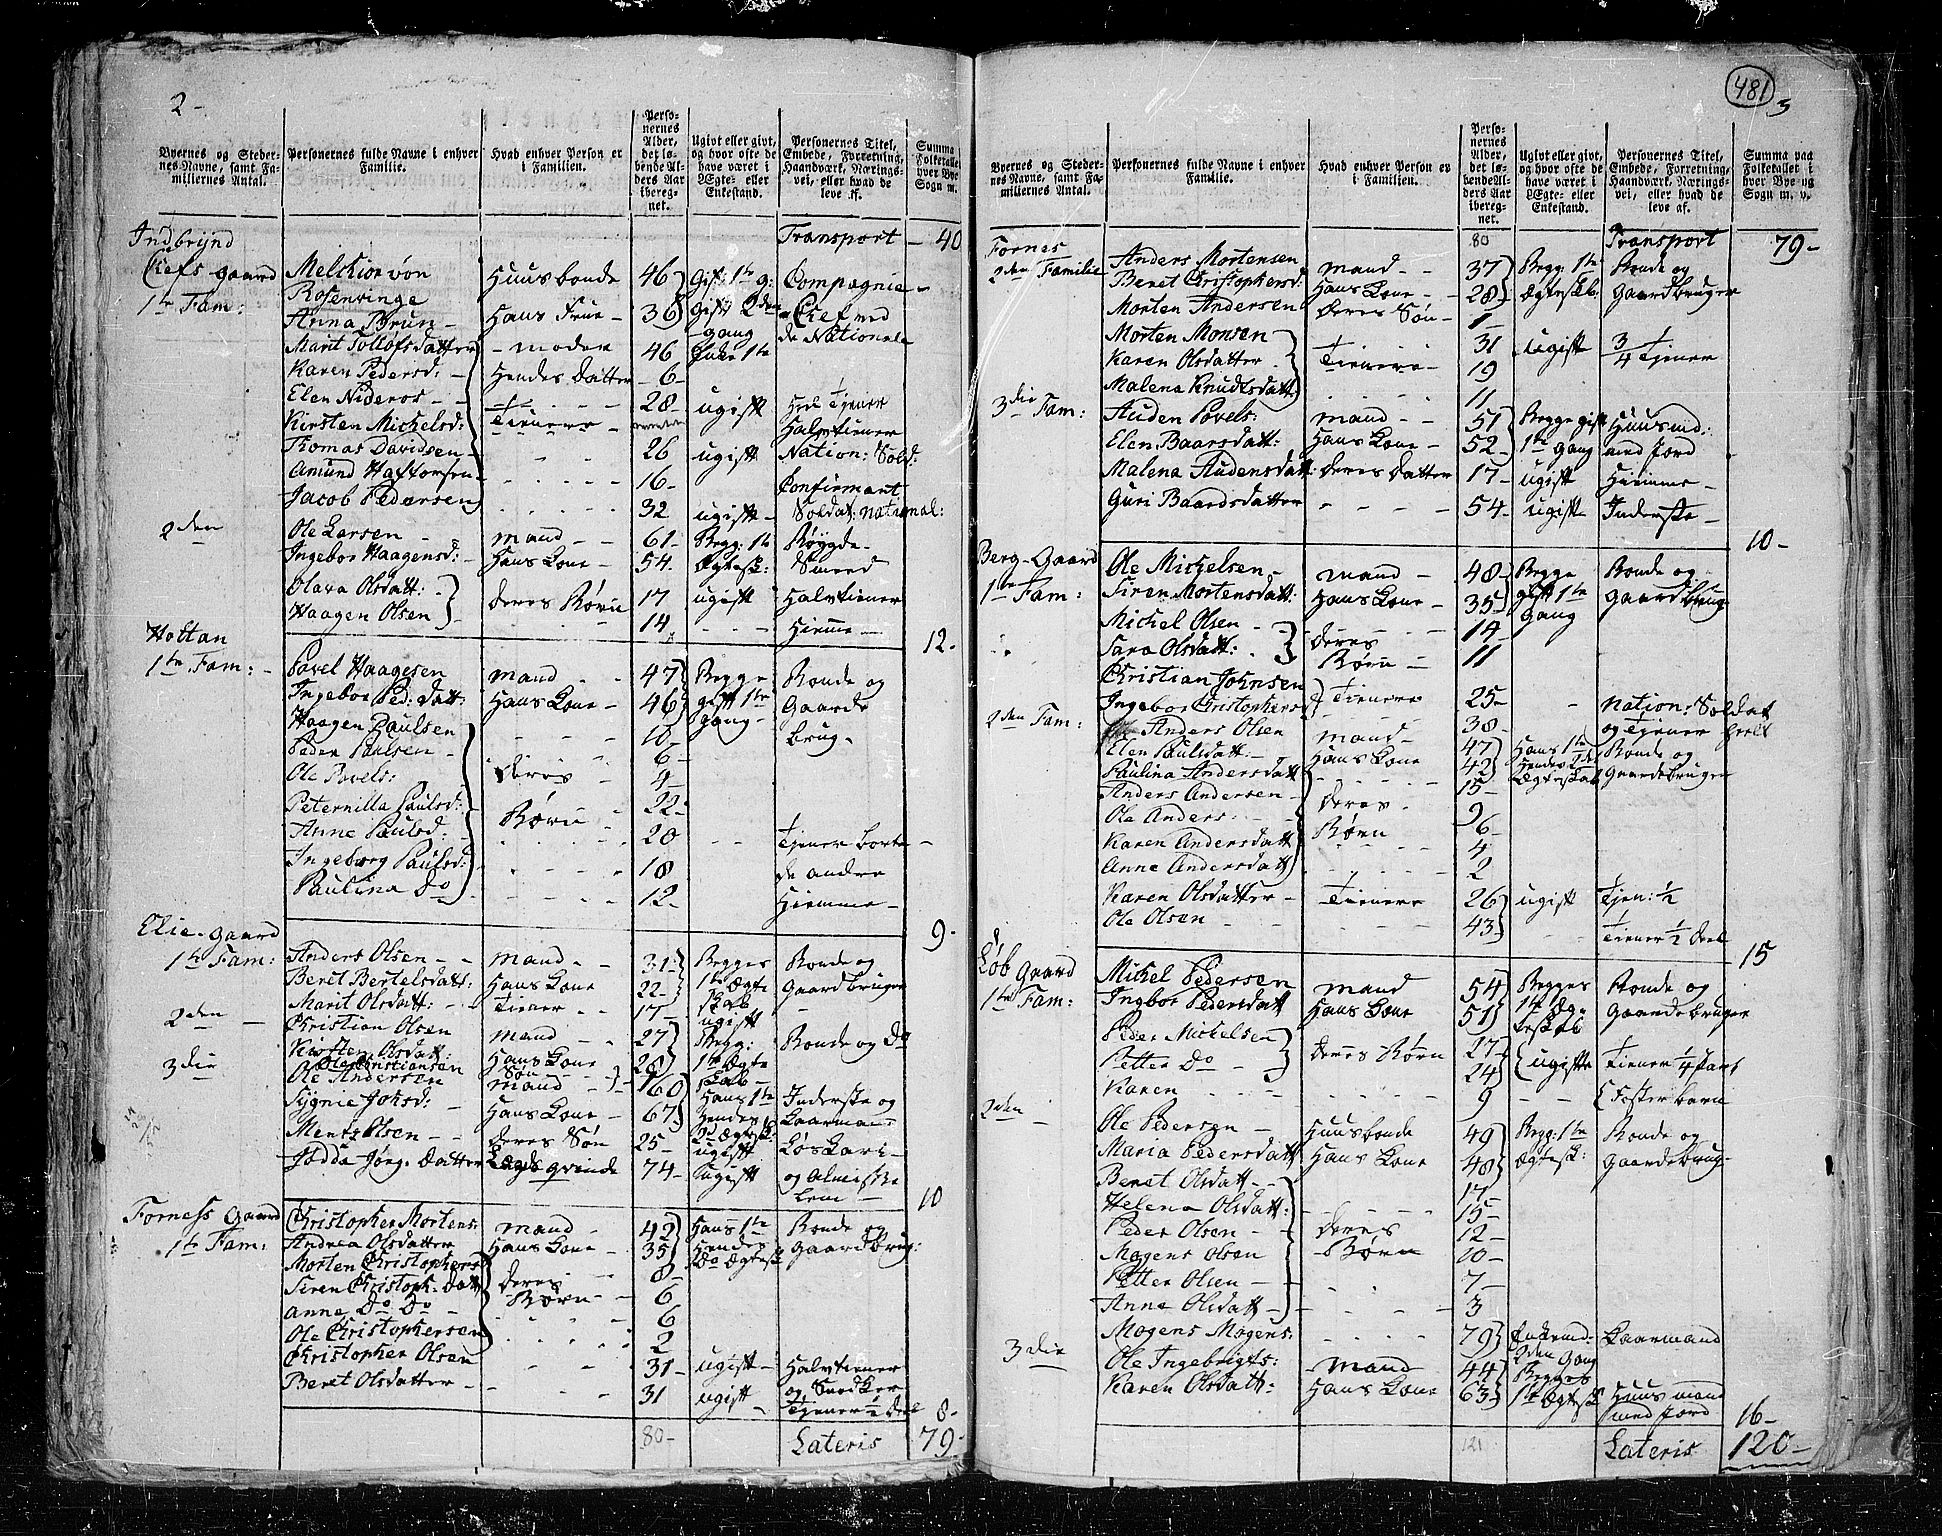 2-
Byernes og Steder-nes Navne, samt Fa-miliernes Antal. | Personernes fulde Navne i enhver Familie. | Hvad enhver Person er i Familien. | Perso-nernes Alder, det lø-bende Al-ders Aar iberegnet. | Ugivt eller givt, og hvor ofte de have været i Ægte- eller Enkestand. | Personernes Titel, Embede, Forretning, Haandværk, Nærings-vei, eller hvad de leve af. | Summa Folketallet hver Bye Sogn m.
Indbrynd | Transport - 40
Chefs gaard Melchior von Huusbonde 46 Gift 1te g: Compagnie-
1te Fam: Rosenvinge
Anna Brun - Hans Frue - 36 gift 2den Chef ved
Marit Tollofsdatter - moder 46 gang Enke 1te de Nationale
Karen Pedersd: - Hendes Datter - 6-
Elen Nideros - - 28- ugift Heel Tjener
Kirsten Michelsd: Tienere - Halvtiener
Thomas Davidsen - 26 ugift Nation: Sold:
Amund Haftorsen - 16- Confirmant
Jacob Pedersen 32 ugift - Soldat: national:
2den Ole Larsen mand - - 61- Begg: 1te Bøygde-
Ingebor Haagensd: - Hans Kone - 54. Ægtesk: Smeed
Olava Olsdatt: - deres Børn 17 ugift Halvtiener
Haagen Olsen 14 - - - Hiemme - 12-
Holtan
1te Fam: - Povel Haagesen mand - - 47 Begge Bonde og
Ingebor Ped: datt: Hans Kone - 46 gift 1te Gaarde
Haagen Paulsen 10- gang - brug -
Peder Paulsen - 6-
Ole Povels: deres 4-
Peternilla Paulsd: 22-
Anne Paulsd: - Børn 20 - - Tjener borte -
Ingeborg Paulsd: 18 de andre
Paulina Do 12- Hiemme - 9-
Elie-gaard
1te Fam: Anders Olsen - - mand - - 31- Begges Bonde og
Beret Bertelsdatt: Hans Kone 22- 1te Ægte Gaardbruger
Marit Olsdatt: - - Tiener - - 17- skab ugift -
2den - Christian Olsen mand - - 27 Begg: Bonde og Do
Kirsten Olsdatt: Hans Kone 28 1te Ægte
Ole Christiansen Søn - - 1 skab -
3die Ole Andersen mand - 60 Hans 1te Inderste og
Sygnie Johsd: Hans Kone - 67 Hendes Kaarmand
Ments Olsen - - deres Søn 25- 2d Ægtesk: ugift Løskari -
Jødda Jørg. datter Lægds qvinde 74- ugift og Almisse
lem - 10
Forness Gaard
1te Fam: Christopher Mortens: mand - 42 Hans 1te Bonde og
Andrea Olsdatter Hans Kone - 35 Hendes Gaardbrug:
Morten Christophers 8- Do Ægtesk
Siren Christoph: datt deres 6
Anne Do Do - Børn - - 6
Ole Christophersen 2
Christopher Olsen 31- ugift - Halvtiener
Beret Olsdatter - - 31 ugift - og Snedker
Tjener ½ deel 8-
80- Lateris 79-
481
3
Byernes og Steder-nes Navne, samt Fa-miliernes Antal. | Personernes fulde Navne i enhver Familie. | Hvad enhver Person er i Familien. | Perso-nernes Alder, det lø-bende Al-ders Aar iberegnet. | Ugivt eller givt, og hvor ofte de have været i Ægte- eller Enkestand. | Personernes Titel, Embede, Forretning, Haandværk, Nærings-vei, eller hvad de leve af. | Summa paa Folketallet i hver Bye og Sogn m. v.
Fornes 80 Transport 79-
2den Familie Anders Mortensen mand - - 37 Begg: 1te Bonde og
Beret Christophersd: Hans Kone - 28 Ægteskb: Gaardbruger
Morten Andersen deres Søn - 1-
Morten Monsen 31 ugift 3/4 Tjener
Karen Olsdatter - Tienere - 19
Malena Knudtsdatt 11
3die Fam: Auden Povels: mand - - 51 Begge gift Huusmd:
Elen Baarsdatt: Hans Kone - 52- 1te Gang med Jord
Malena Audensdatt: deres datter 17- ugift Hiemme -
Guri Baardsdatter - - - - 54- ugift Inderste - 10-
Berg-Gaard Ole Michelsen - mand - 48- Begge Bonde og -
1te Fam: Siren Mortensdatt: Hans Kone - 35 gift 1te Gaardbrug-
Michel Olsen - - deres 14- Gang
Sara Olsdatt: - Børn - 11
Christian Johnsen 25- - Nation: Soldat
Ingebor Christophersd Tienere 38- og Tjener heelt
2den Fam: Anders Olsen mand - 47 Hans 1te Bonde og
Elen Paulsdatt: - Hans Kone 42 Hendes 2de Gaardebruger
Paulina Andersdatt - - - - 15- Ægteskab
Anders Andersen - deres - 9
Ole Anders: - - Børn 6-
Karen Andersdatt 4
Anne Andersdatt 2
Karen Olsdatter - Tienere 26 ugift Tjen: ½
Ole Olsen - - 43 - - Tiener ½ deel 15
Løb Gaard
1te Fam: Michel Pedersen mand 54 Begges Bonde og
Ingbor Pedersdatt Hans Kone 51 1te Æg-teskab Gaardebruger
Peder Michelsen deres Børn 27-
Petter Do - - 24 ugifte Tiener ¼ part
Karen - - - - 9 - Foster barn
2den - Ole Pedersen - Huusbonde 49 Begg: 1te Bonde og
Maria Pedersdatt Hans Kone 48 Ægtesk: Gaardebrug-
Beret Olsdatt - - 17-
Helena Olsdatt: 15-
Peder Olsen - - deres 12-
Mogens Olsen - Børn 10-
Petter Olsen - - 7-
Anne Olsdatt - 3
Mogens Mogens: - - - - 79 Enkemd: 2den Gang Kaarmand
3die Ole Ingebrigts: mand 44 Begges
Karen Olsdatt: Hans Kone 63- 1te Ægtesk Huusmand
med Jord 16-
121 Lateris 120-